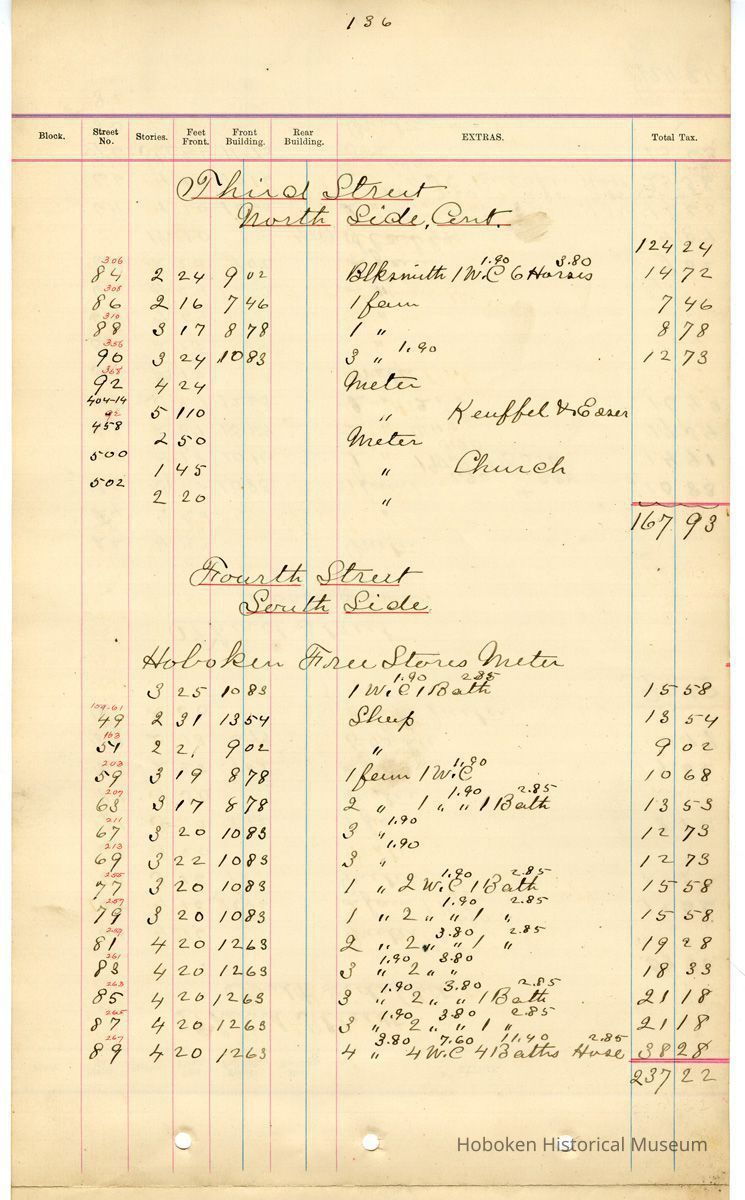 136
Block. Street No. Stories. Feet Front. Front Building. Rear Building. EXTRAS. Total Tax.
Third Street
North Side, Cont.
124 24
306 1.90 3.80
84 2 24 9 02 Blksmith 1 W.C 6 Horses 14 72
308
86 2 16 7 46 1 fam 7 46
310
88 3 17 8 78 1 " 8 78
336 1.90
90 3 24 10 83 3 " 12 73
368
92 4 24 Meter
404-14
5 110 " Keuffel & Esser
92
458
2 50 Meter
500
1 45 " Church
502
2 20 "
167 93
Fourth Street
South Side
Hoboken Free Stores Meter
1.90 2.85
3 25 10 83 1 W.C 1 Bath 15 58
159-61
49 2 31 13 54 Shop 13 54
163
51 2 21 9 02 " 9 02
203 1.90
59 3 19 8 78 1 fam 1 W.C 10 68
207 1.90 2.85
63 3 17 8 78 2 " 1 " " 1 Bath 13 53
211 1.90
67 3 20 10 83 3 " 12 73
213 1.90
69 3 22 10 83 3 " 12 73
255 1.90 2.85
77 3 20 10 83 1 " 2 W.C 1 Bath 15 58
257 1.90 2.85
79 3 20 10 83 1 " 2 " " 1 " 15 58
259 3.80 2.85
81 4 20 12 63 2 " 2 " " 1 " 19 28
261 1.90 3.80
83 4 20 12 63 3 " 2 " " 18 33
263 1.90 3.80 2.85
85 4 20 12 63 3 " 2 " " 1 Bath 21 18
265 1.90 3.80 2.85
87 4 20 12 63 3 " 2 " " 1 " 21 18
267 3.80 7.60 11.40 2.85
89 4 20 12 63 4 " 4 W.C 4 Baths Hose 38 28
237 22
Hoboken Historical Museum